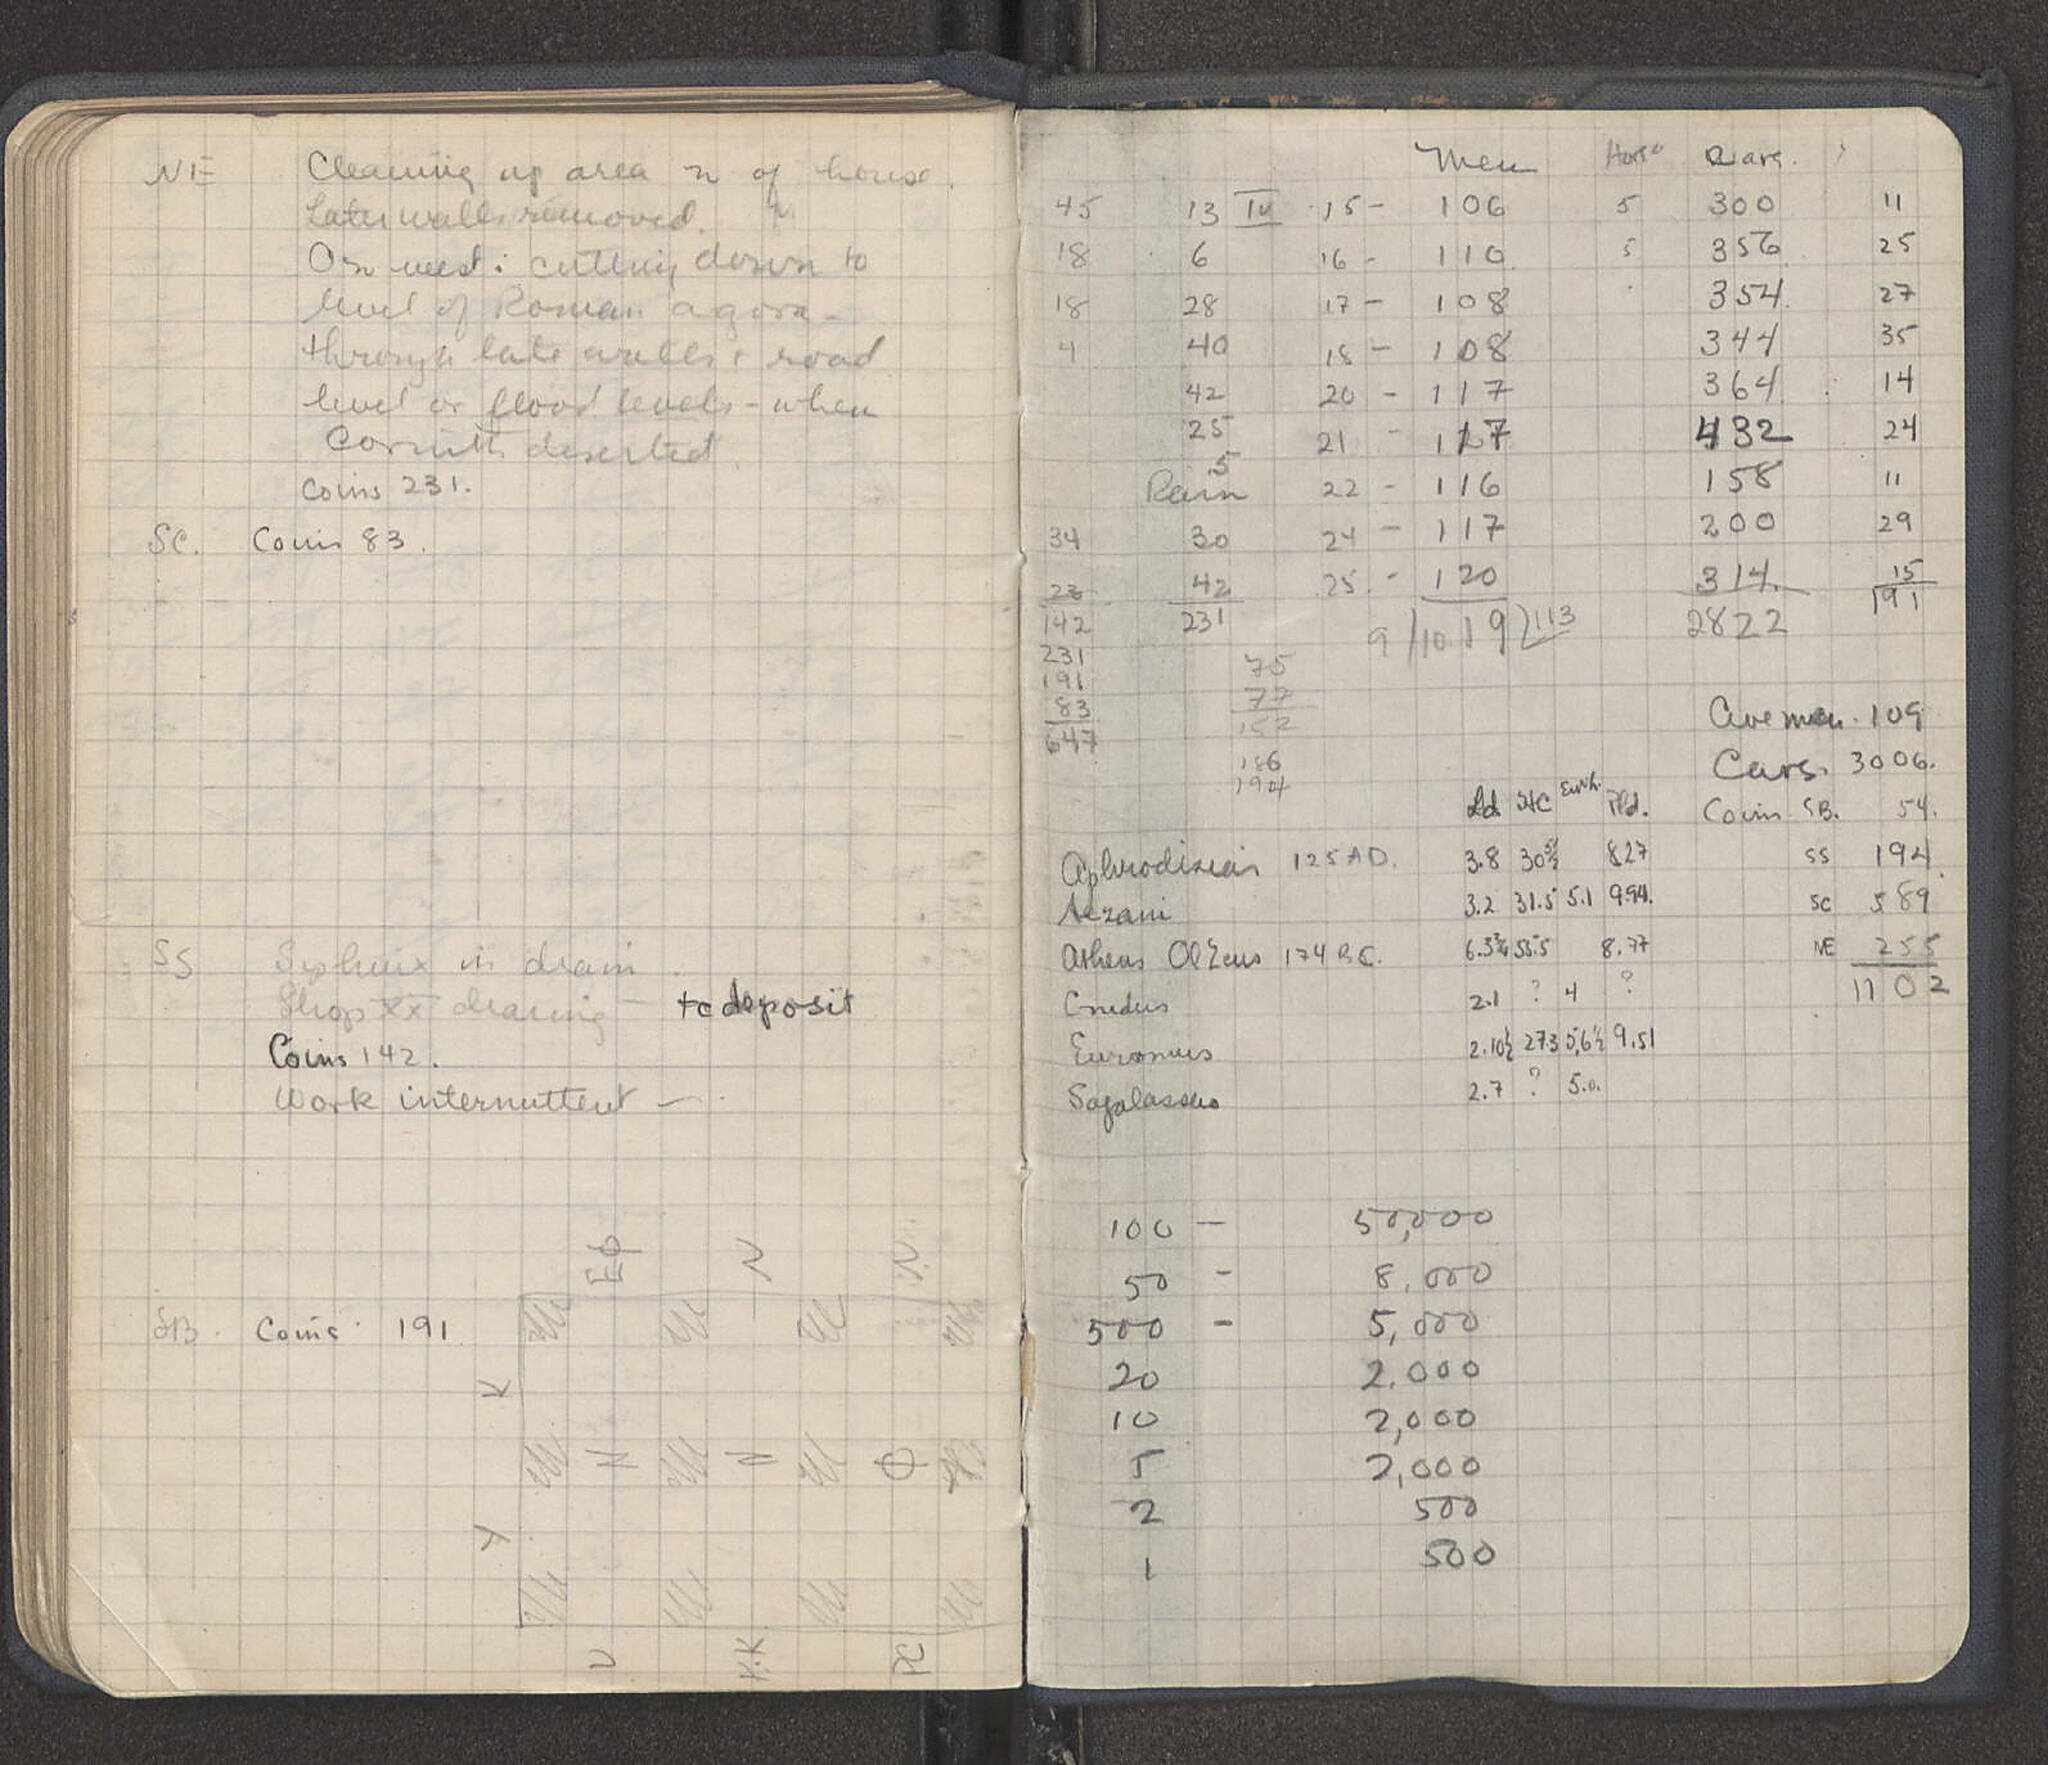 NE Cleaning up area n of house.
Later walls removed.
On west: cutting down to
level of Roman agora -
through late walls & road
level or flood levels - when
Corinth deserted.
Coins 231.
SC. Coins 83.
SS Sphinx in drain.
Shop XX drawing - to deposit
Coins 142.
Work intermittent -
Eph N N.
SB. Coins 191
K
N N Φ
Y
U K.K PC
Men Horse Cars.
45 13 IV 15 - 106 5 300 11
18 6 16 - 110 5 356 25
18 28 17 - 108 354 27
4 40 18 - 108 344 35
42 20 - 117 364 14
25 21 - 117 432 24
5
Rain 22 - 116 158 11
34 30 24 - 117 200 29
23 42 25 - 120 314 15
142 231 9 1019 113 2822 191
231 75
191 77
83 152
647
186
194
Ave men. 109
Cars. 3006.
Ld. Ht Pld.
Coins SB. 54.
Aphrodisias 125 AD. 3.8 30 8.27
SS 194
Aezani 3.2 31.5 5.1 9.94.
SC 589
Athens Ol Zeus 174 B.C. 6.3¾ 55.5 8.77
NE 255
1102
Cnidus 2.1 ? 4 ?
Euromus 2.10½ 27.3 5,6½ 9.51
Sagalassus 2.7 ? 5.0.
100 - 50,000
50 - 8,000
500 - 5,000
20 2.000
10 2,000
5 2,000
2 500
1 500